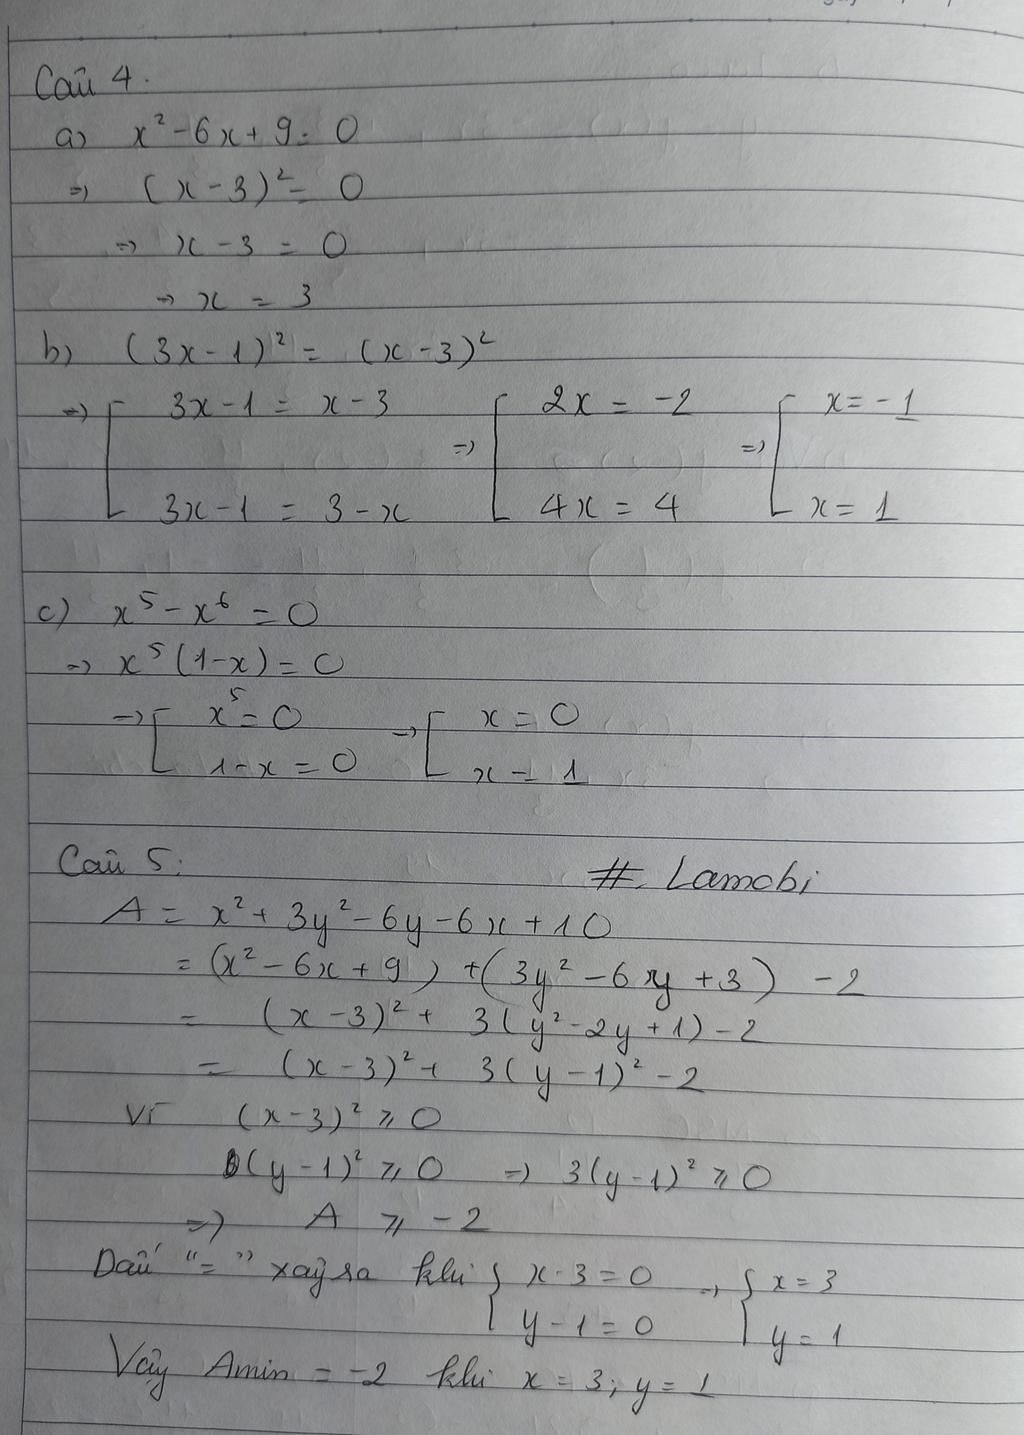 Câu 4.
a) x² - 6x + 9 = 0
=) (x - 3)² = 0
=) x - 3 = 0
=) x = 3
b) (3x - 1)² = (x - 3)²
=) [ 3x - 1 = x - 3 =) [ 2x = -2 =) [ x = -1
3x - 1 = 3 - x 4x = 4 x = 1
c) x⁵ - x⁶ = 0
=) x⁵ (1 - x) = 0
=) [ x⁵ = 0 =) [ x = 0
1 - x = 0 x = 1
Câu 5:
#. Lamobi
A = x² + 3y² - 6y - 6x + 10
= (x² - 6x + 9) + (3y² - 6y + 3) - 2
= (x - 3)² + 3(y² - 2y + 1) - 2
= (x - 3)² + 3(y - 1)² - 2
Vì (x - 3)² ⩾ 0
(y - 1)² ⩾ 0 =) 3(y - 1)² ⩾ 0
=) A ⩾ -2
Dấu "=" xảy ra khi { x - 3 = 0 =) { x = 3
y - 1 = 0 y = 1
Vậy Amin = -2 khi x = 3; y = 1